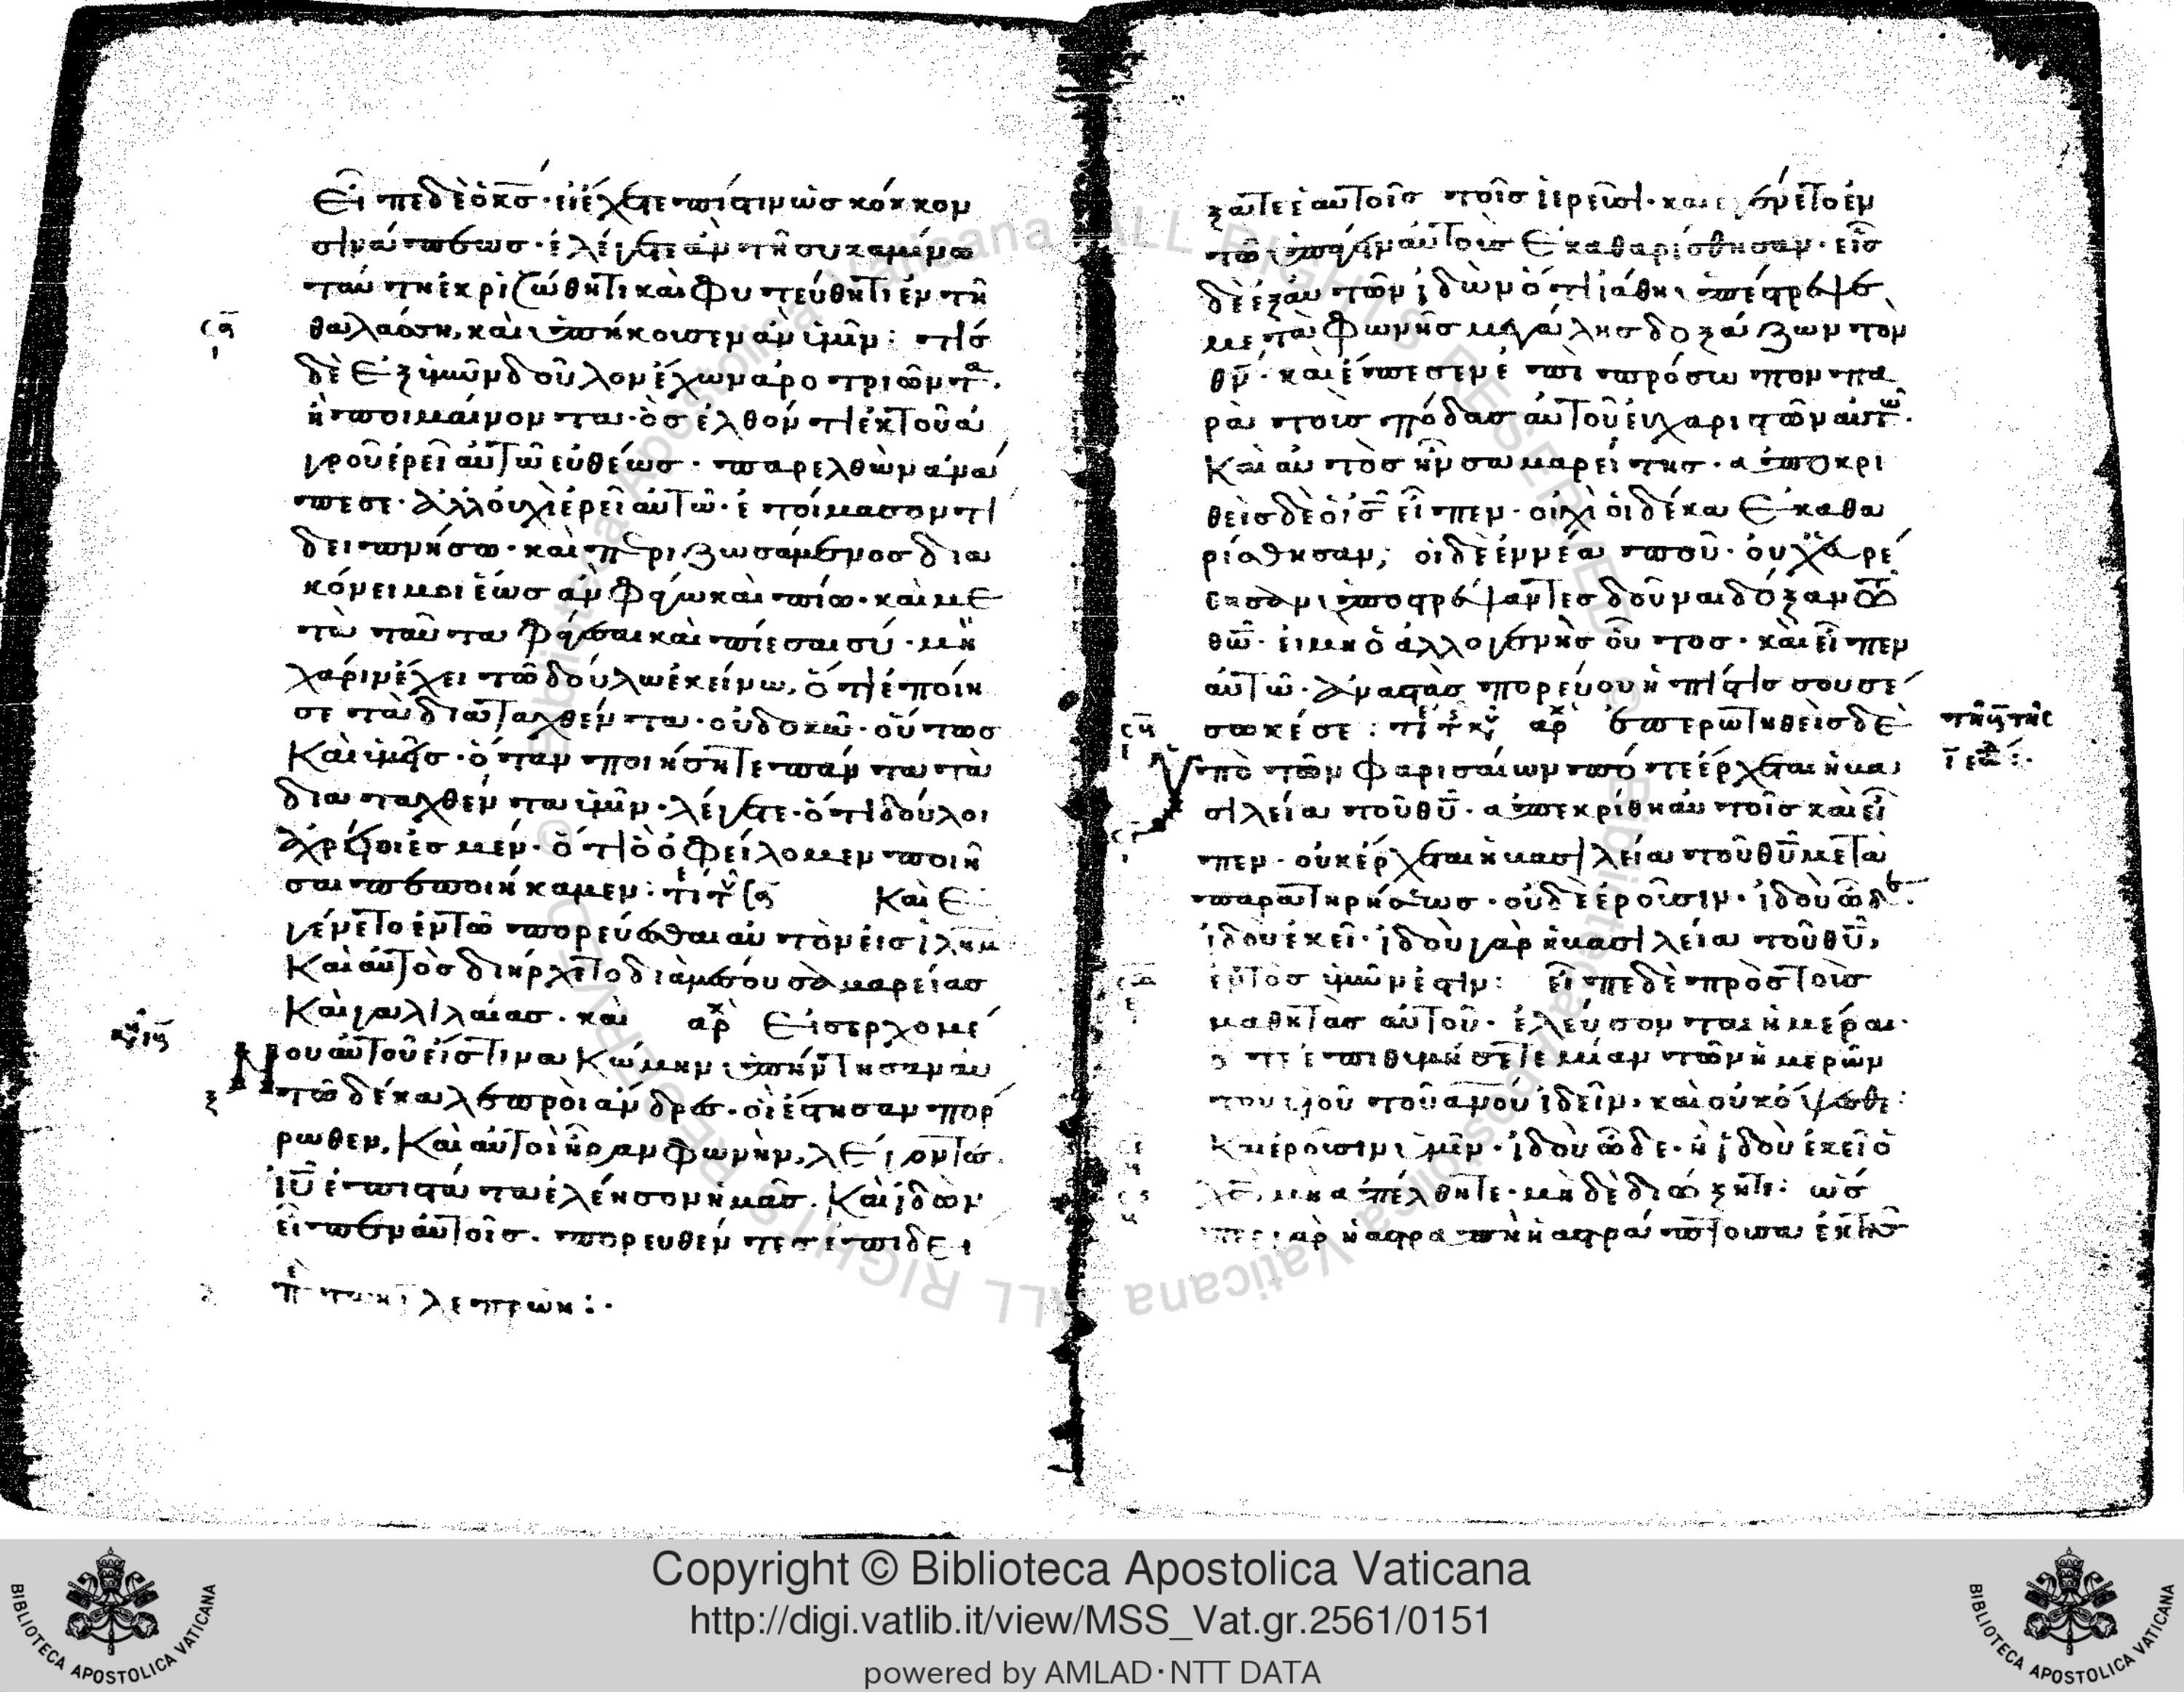 Εἶπε δὲ ὁ κ̅σ̅· εἰ ἔχετε πίστιν ὡς κόκκον
σινάπεως· ἐλέγετε ἂν τῆ συκαμίνω
ταύτη ἐκριζώθητι καὶ φυτεύθητι ἐν τῆ
θαλάσση, καὶ ὑπήκουσεν ἂν ὑμῖν: τίς
δὲ ἐξ ὑμῶν δοῦλον ἔχων ἀροτριῶντα.
ἢ ποιμαίνοντα· ὃς ἐλθόντι ἐκ τοῦ ἀ
γροῦ ἐρεῖ αὐτῶ εὐθέως· παρελθὼν ἀνά
πεσε· ἀλλ' οὐχὶ ἐρεῖ αὐτῶ· ἑτοίμασον τί
δειπνήσω· καὶ περιζωσάμενος δια
κόνει μοι ἕως ἂν φάγω καὶ πίω· καὶ με
τὰ ταῦτα φάγεσαι καὶ πίεσαι σύ· μὴ
χάριν ἔχει τῶ δούλω ἐκείνω, ὅτι ἐποίη
σε τὰ διαταχθέντα· οὐ δοκῶ· οὕτως
καὶ ὑμεῖς· ὅταν ποιήσητε πάντα τὰ
διαταχθέντα ὑμῖν· λέγετε· ὅτι δοῦλοι
ἀχρεῖοι ἐσμέν· ὅτι ὃ ὀφείλομεν ποιῆ
σαι πεποιήκαμεν: Καὶ ἐ
γένετο ἐν τῶ πορεύεσθαι αὐτὸν εἰς ἱλημ
καὶ αὐτὸς διήρχετο διὰ μέσου σαμαρείας
καὶ γαλιλαίας· καὶ αρχ εἰσερχομέ
νου αὐτοῦ εἴς τινα κώμην ὑπήντησαν αὐ
τῶ δέκα λεπροὶ ἄνδρες· οἳ ἔστησαν πόρ
ρωθεν, καὶ αὐτοὶ ἦραν φωνὴν, λέγοντες.
ἰ̅υ̅ ἐπιστάτα ἐλέησον ἡμᾶς. καὶ ἰδὼν
εἶπεν αὐτοῖς. πορευθέντες ἐπιδεί
λεπρῶν:·
ξατε ἑαυτοῖς τοῖς ἱερεῦσι· καὶ ἐγένετο ἐν
τῶ ὑπάγειν αὐτοὺς ἐκαθαρίσθησαν· εἷς
δὲ ἐξ αὐτῶν ἰδὼν ὅτι ἰάθη, ὑπέστρεψε
μετὰ φωνῆς μεγάλης δοξάζων τὸν
θ̅ν̅· καὶ ἔπεσεν ἐπὶ πρόσωπον πα
ρὰ τοὺς πόδας αὐτοῦ εὐχαριστῶν αὐτῶ·
καὶ αὐτὸς ἦν σαμαρείτης· ἀποκρι
θεὶς δὲ ὁ ἰ̅σ̅ εἶπεν· οὐχὶ οἱ δέκα ἐκαθα
ρίσθησαν; οἱ δὲ ἐννέα ποῦ· οὐχ εὑρέ
θησαν ὑποστρέψαντες δοῦναι δόξαν τῶ
θ̅ω̅· εἰ μὴ ὁ ἀλλογενὴς οὗτος· καὶ εἶπεν
αὐτῶ· ἀναστὰς πορεύου ἡ πίστις σου σέ
σωκέ σε: αρχ ἐπερωτηθεὶς δὲ
ὑπὸ τῶν φαρισαίων πότε ἔρχεται ἡ βα
σιλεία τοῦ θ̅υ̅· ἀπεκρίθη αὐτοῖς καὶ εἶ
πεν· οὐκ ἔρχεται ἡ βασιλεία τοῦ θ̅υ̅ μετὰ
παρατηρήσεως· οὐδὲ ἐροῦσιν· ἰδοὺ ὧδε·
ἰδοὺ ἐκεῖ· ἰδοὺ γὰρ ἡ βασιλεία τοῦ θ̅υ̅,
ἐντὸς ὑμῶν ἐστιν: εἶπε δὲ πρὸς τοὺς
μαθητὰς αὐτοῦ· ἐλεύσονται ἡμέραι·
ὅτε ἐπιθυμήσετε μίαν τῶν ἡμερῶν
τοῦ υἱοῦ τοῦ α̅ν̅ο̅υ̅ ἰδεῖν, καὶ οὐκ ὄψεσθε:
καὶ ἐροῦσιν ὑμῖν· ἰδοὺ ὧδε· ἢ ἰδοὺ ἐκεῖ ὁ
μὴ ἀπέλθητε· μὴ δὲ διώξητε: ὥσ
περ γὰρ ἡ ἀστραπὴ ἡ ἀστράπτουσα ἐκ τῆς